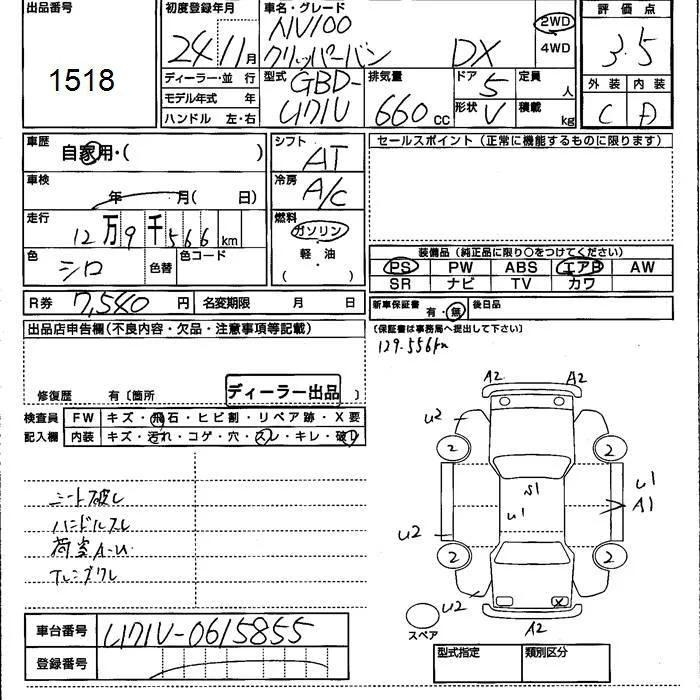 出品番号
1518
初度登録年月
24 11月
ディーラー・並 行
モデル年式 年
ハンドル 左・右
車名・グレード
NV100
クリッパーバン DX
2WD
4WD
型式 GBD-
U71V
排気量
660 cc
ドア 5
形状 V
定員 人
積載 kg
評価点
3.5
外装 内装
C D
車歴
自家用・( )
車検
年 月( 日)
走行
12万9千566km
色
シロ
色替
色コード
シフト
AT
冷房
A/C
燃料
ガソリン
・
軽・油
( )
セールスポイント(正常に機能するものに限ります)
装備品(純正品に限り○をつけてください)
PS PW ABS エアB AW
SR ナビ TV カワ
R券 7,540円 名変期限 月 日
新車保証書 有・無 後日品
(保証書は事務局へ提出して下さい)
129.556km
出品店申告欄(不良内容・欠品・注意事項等記載)
修復歴 有〔箇所 〕
ディーラー出品
検査員
記入欄
FW キズ・飛石・ヒビ割・リペア跡・X要
内装 キズ・汚れ・コゲ・穴・スレ・キレ・破レ
シート破レ
ハンドルスレ
荷室A-U
A2 A2
U2
2 2
S1
U1
U1
A1
U2
2 2
U2
X
A2
スペア
車台番号 U71V-0615855
登録番号
型式指定 類別区分